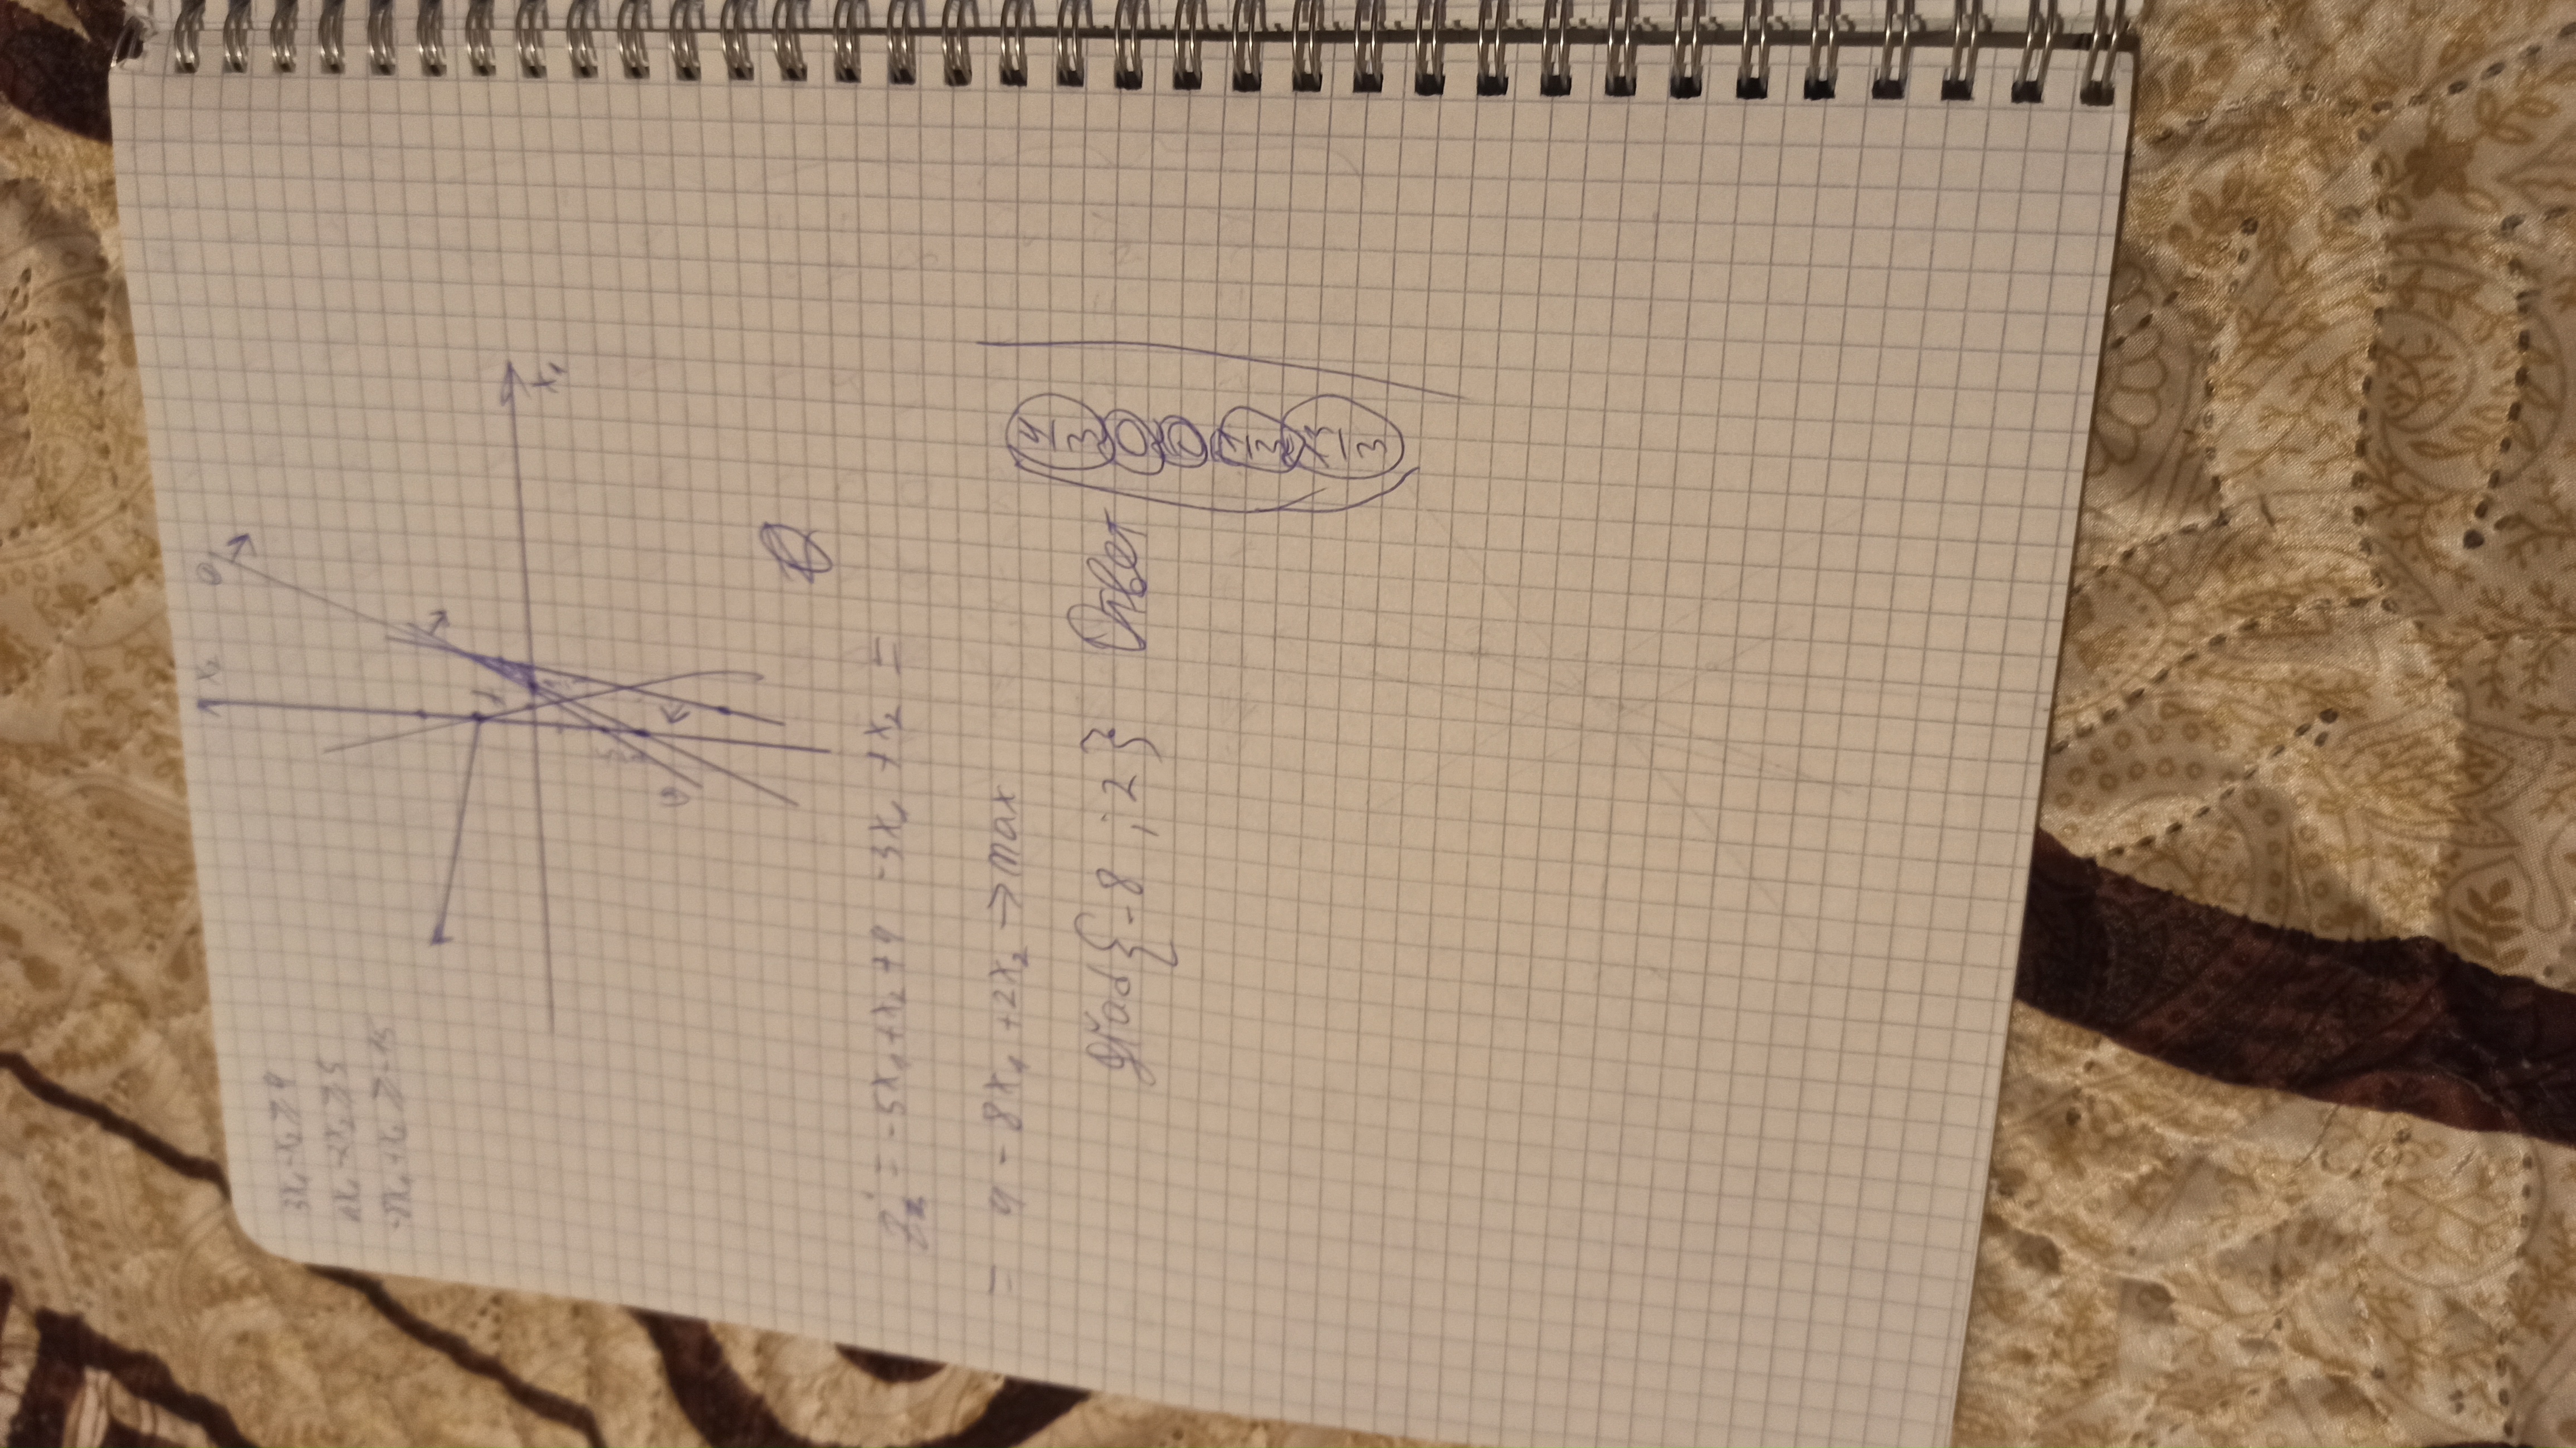 3x₁ - x₂ ≥ 4
4x₁ - 2x₂ ≥ 5
-8x₁ + x₂ ≥ -15
x₂
1
x₁
= -5x₁ + x₂ + 4 - 3x₁ + x₂ =
= 4 - 8x₁ + 2x₂ → max
grad{-8 ; 2} Ответ
4/3
0
0
1/3
13/3